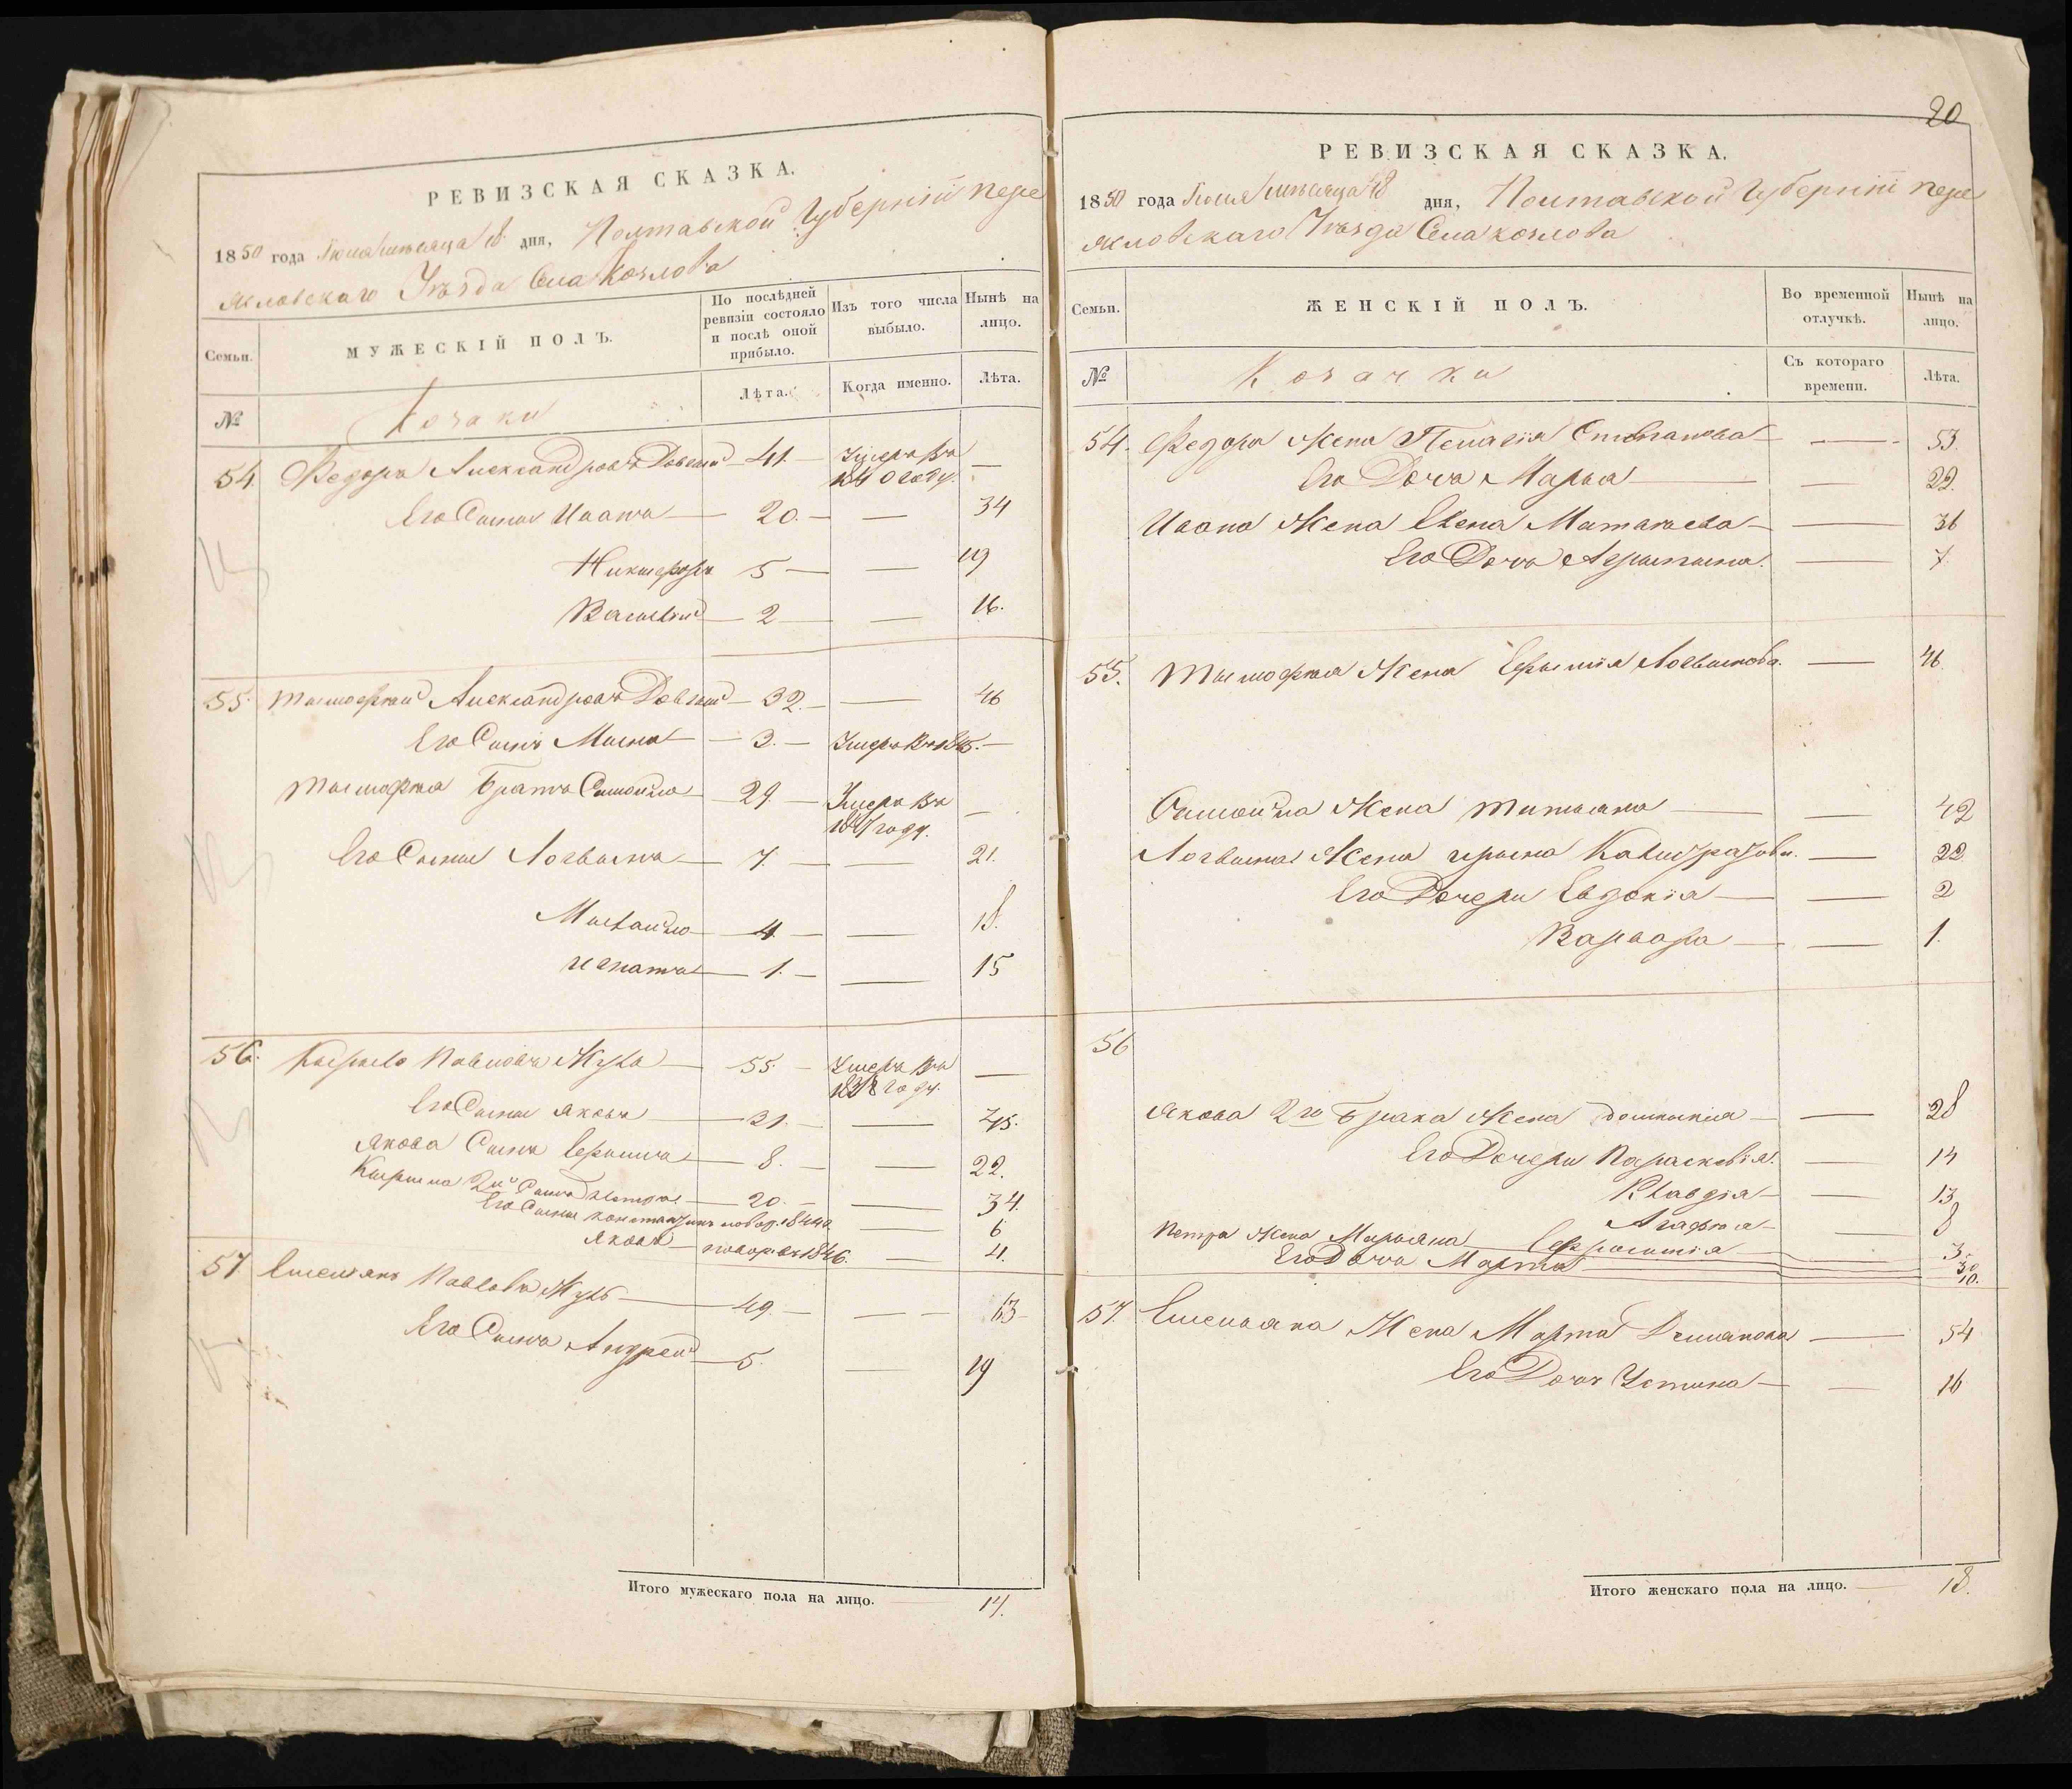 РЕВИЗСКАЯ СКАЗКА.
1850 года Іюля мѣсяца 18 дня, Полтавской Губерніи Пере
яславскаго Уѣзда Села Козлова
Семьи.
МУЖЕСКІЙ ПОЛЪ.
По послѣдней ревизіи состояло и послѣ оной прибыло.
Изъ того числа выбыло.
Нынѣ на лицо.
№
Козаки
Лѣта.
Когда именно.
Лѣта.
54. Федоръ Александровъ — 41. — Умеръ въ 1840 году. —
Его Сыны Иванъ — 20. — — 34
Никифоръ 5 — — 19
Василій — 2 — — 16.
55. Тимофей Александровъ — 32. — — 46
Его Сынъ Мина — 3. — Умеръ въ 1845. —
Тимофея Братъ Самойло — 29. — Умеръ въ 1847 году. —
Его Сыны Логвинъ — 7. — — 21.
Михайло — 4. — — 18.
Игнатъ — 1. — — 15
56. Кирило Павловъ — 55. — Умеръ въ 1838 году. —
Его Сыны Яковъ — 31. — — 45.
Якова Сынъ — 8. — — 22.
Кирила 2й Сынъ Петръ — 20. — — 34.
Его Сыны 1844 — 6
Яковъ — 1846. — 4.
57. Емельянъ Павловъ — 49. — — — 63
Его Сынъ Андрей — 5. — 19
Итого мужескаго пола на лицо. — 14.
20
РЕВИЗСКАЯ СКАЗКА.
1850 года Іюля мѣсяца 18 дня, Полтавской Губерніи Пере
яславскаго Уѣзда Села Козлова
Семьи.
ЖЕНСКІЙ ПОЛЪ.
Во временной отлучкѣ.
Нынѣ на лицо.
№
Козачки
Съ котораго времени.
Лѣта.
54. Федора Жена Пелагія Степанова — — 53.
Его Дочь Марья — — 22.
Ивана Жена Елена — — 36
Его Дочь — 7.
55. Тимофея Жена Логвинова. — 46.
Самойла Жена Татьяна — — 42
Логвина Жена Ирина — 22.
Его Дочери Евдокія — — 2
Варвара — — 1.
56
Якова 2го брака Жена — — 28
Его Дочери Параскевія. — 14
Клавдія — — 13
Агафія — — 8
Ефросинія — 3.
Петра Жена Маріяна — 30
Его Дочь Марта — 10.
57. Емельяна Жена Марта — 54
Его Дочь Устина — — 16
Итого женскаго пола на лицо. — 18.